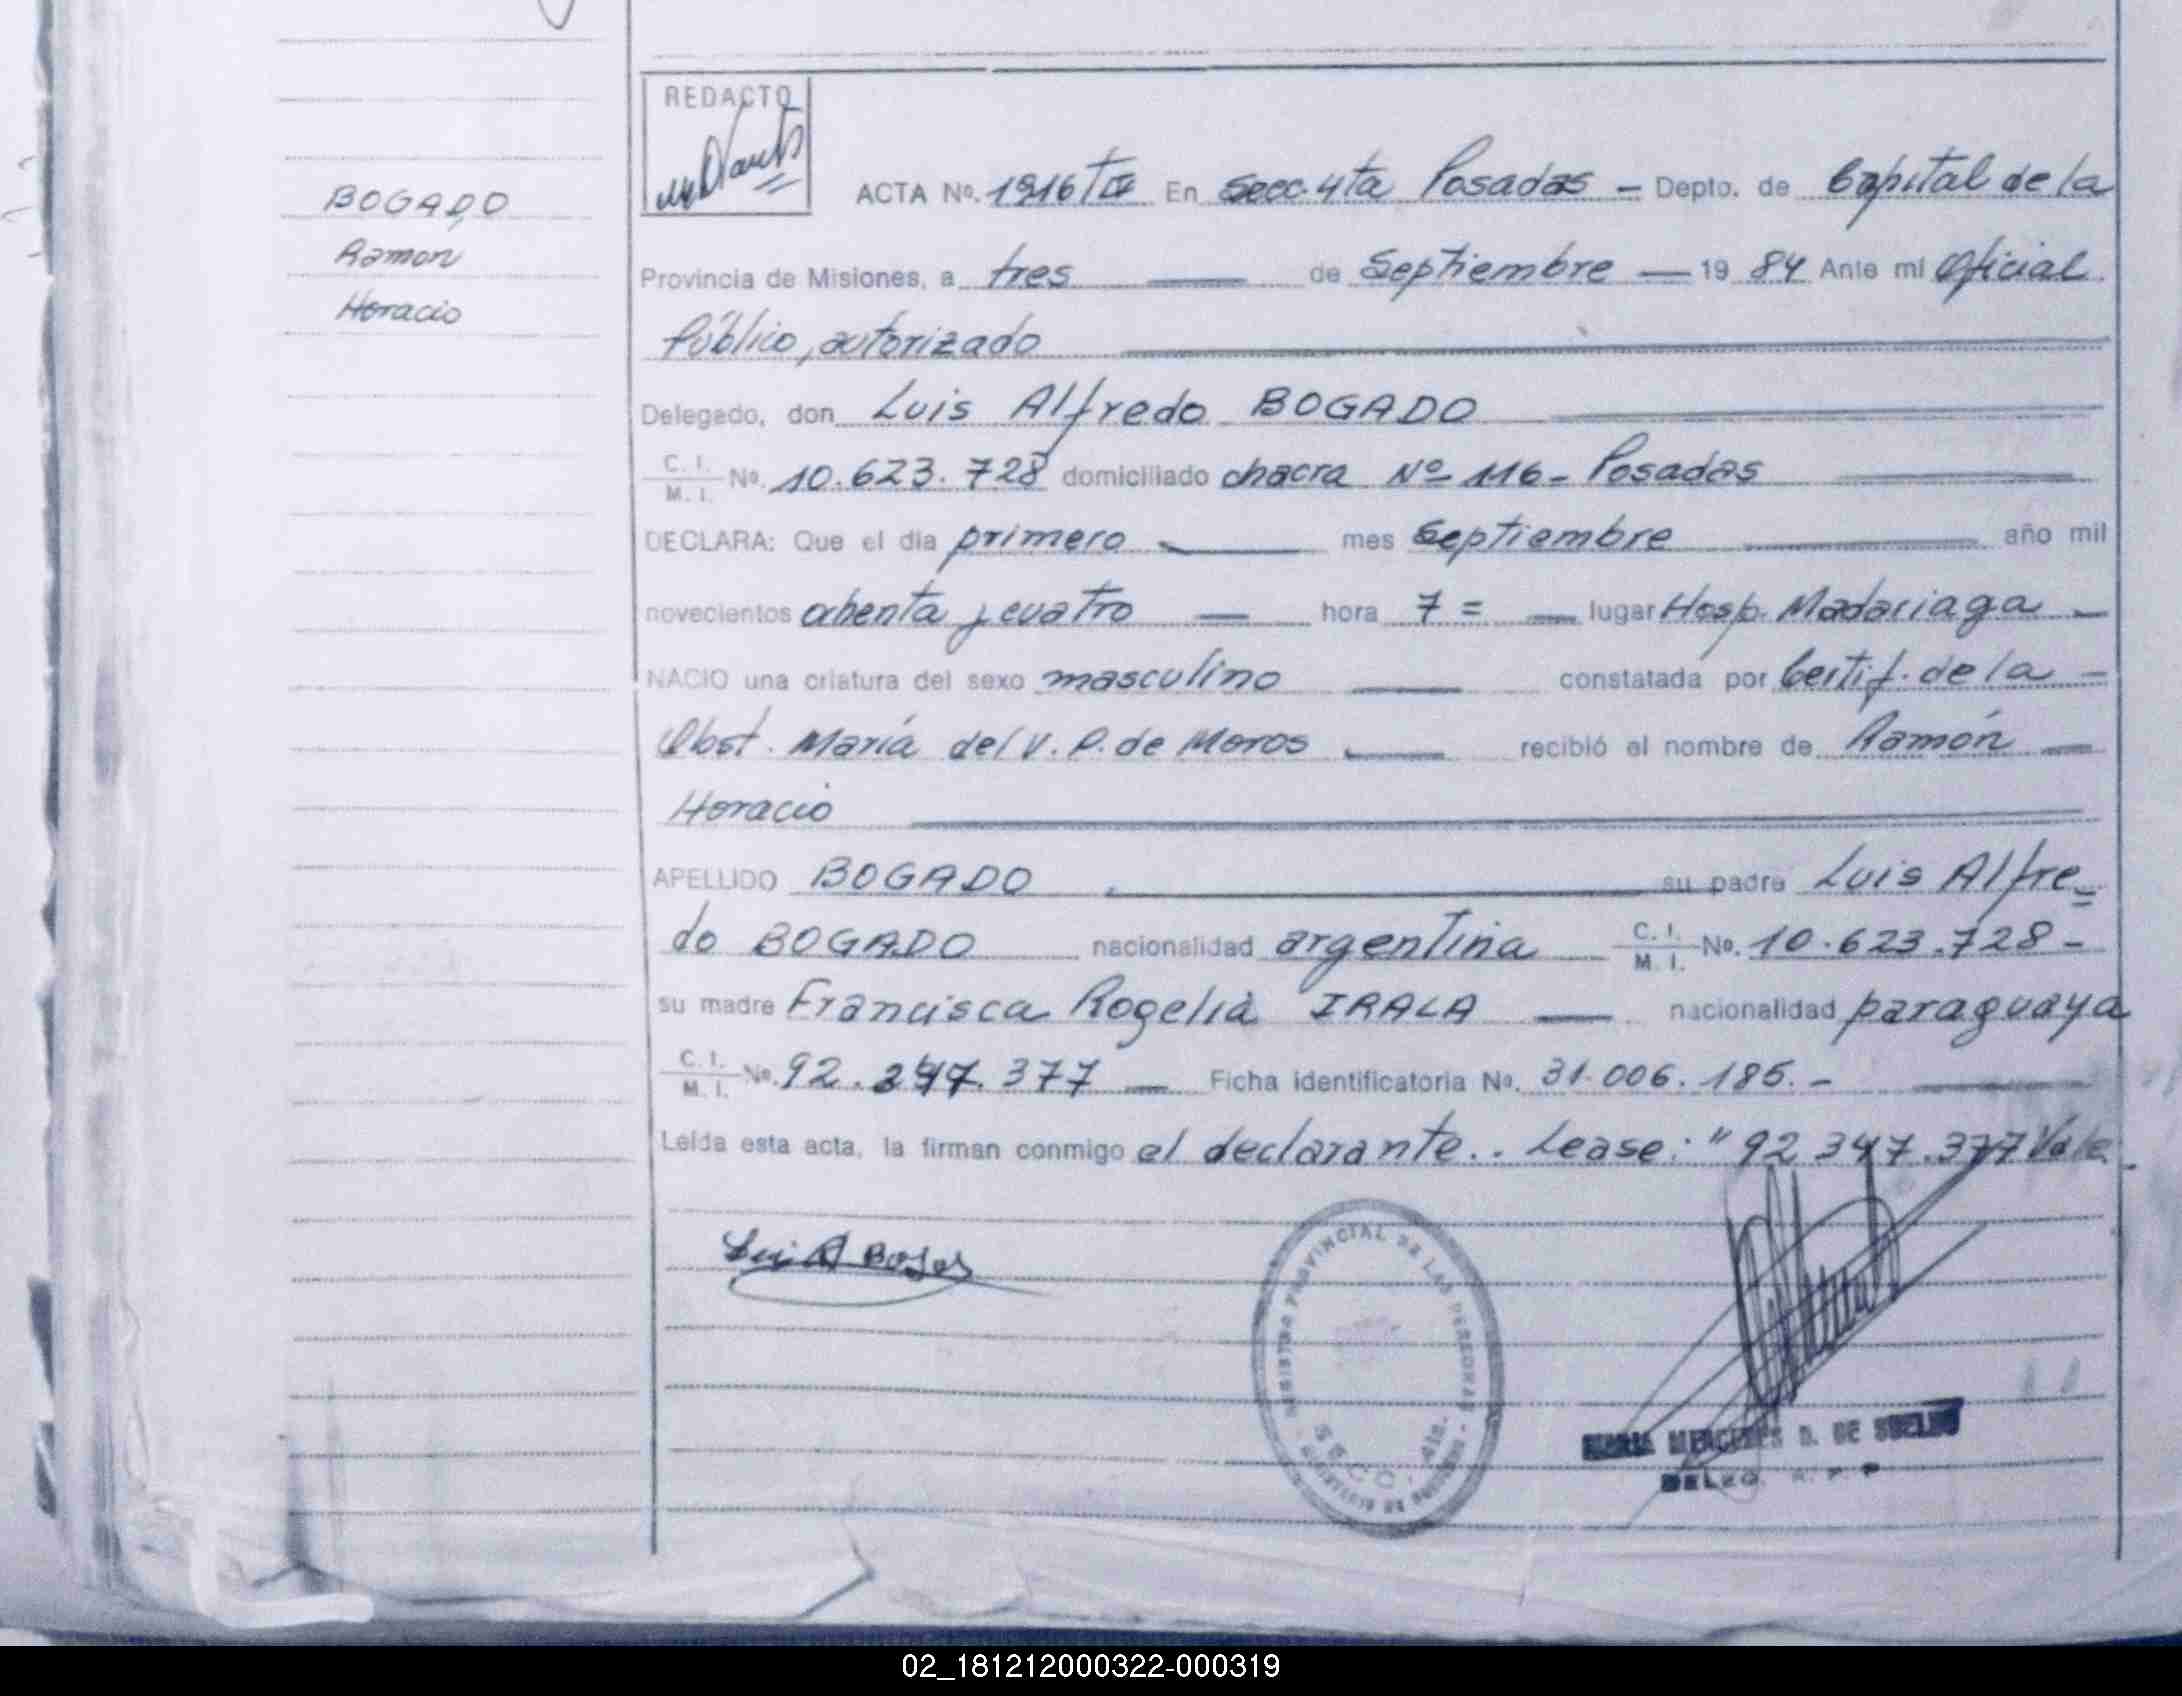 REDACTO
BOGADO
Ramon
Horacio
ACTA No. 1916 T IV En Secc. 4ta Posadas - Depto. de Capital de la
Provincia de Misiones, a tres de Septiembre 19 84 Ante mi Oficial
Público, autorizado
Delegado, don Luis Alfredo BOGADO
C. I. / M. I. No. 10.623.728 domiciliado chacra Nº 116 - Posadas
DECLARA: Que el dia primero mes Septiembre año mil
novecientos ochenta y cuatro hora 7 = lugar Hosp. Madariaga -
NACIO una criatura del sexo masculino constatada por Certif. de la -
Obst. María del V. P. de Moros recibió el nombre de Ramón
Horacio
APELLIDO BOGADO su padre Luis Alfre=
do BOGADO nacionalidad argentina C. I. / M. I. No. 10.623.728 -
su madre Francisca Rogelia IRALA nacionalidad paraguaya
C. I. / M. I. No. 92.347.377 Ficha identificatoria No. 31.006.186. -
Leída esta acta, la firman conmigo el declarante.. Lease: "92 347.377 Vale.
Luis A Bogado
REGISTRO PROVINCIAL DE LAS PERSONAS
SECC. 4ta.
MARIA MERCEDES D. DE SUELDO
DELEG. R. P. P
02_181212000322-000319